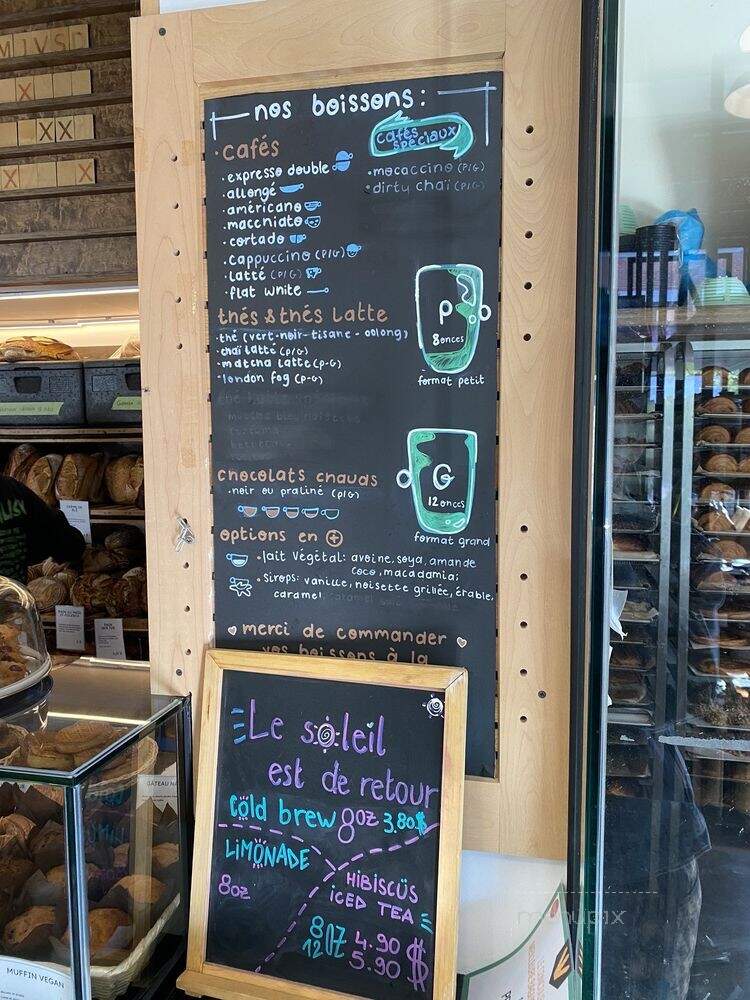 nos boissons:
cafés
cafés spéciaux
· expresso double
· allongé
· américano
· macchiato
· cortado
· cappuccino (P/G)
· latté (P/G)
· flat white
· mocaccino (P/G)
· dirty chaï (P/G)
thés & thés Latte
· thé (vert-noir-tisane-oolong)
· chaï latté (P/G)
· matcha latte (P-G)
· london fog (P-G)
P
8onces
format petit
chocolats chauds
· noir ou praliné (P/G)
G
12 onces
format grand
options en +
· lait végétal: avoine, soya, amande
coco, macadamia;
· sirops: vanille, noisette grillée, érable,
caramel
merci de commander
vos boissons à la
Le soleil
est de retour
Cold brew 8oz 3.80$
LiMONADE
8oz
HiBISCÜS
iCED TEA
8oz 4.90 $
12oz 5.90
MUFFIN VEGAN
menupix